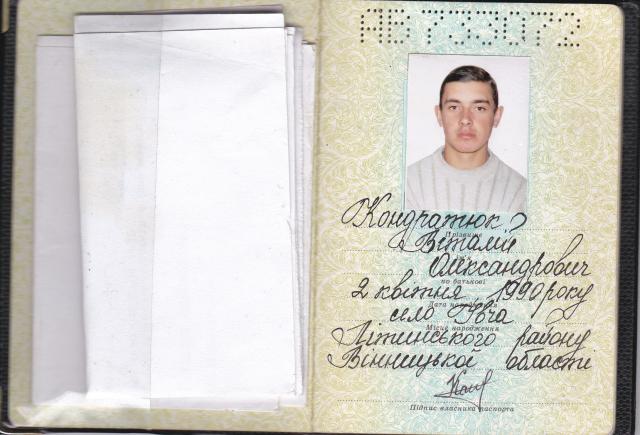 АВ 733072
Кондратюк
Прізвище
Віталій
Олександрович
по батькові
2 квітня 1990 року
Дата народження
село Івча
Місце народження
Літинського району
Вінницької області
Підпис власника паспорта